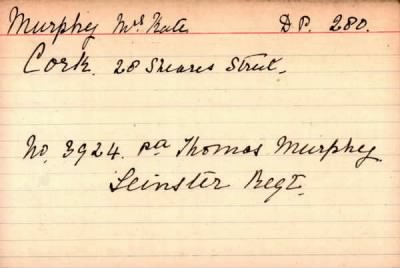 Murphy Mrs Kate D P. 280.
Cork. 28 Sheares Street.
No. 3924. Pte Thomas Murphy
Leinster Regt.